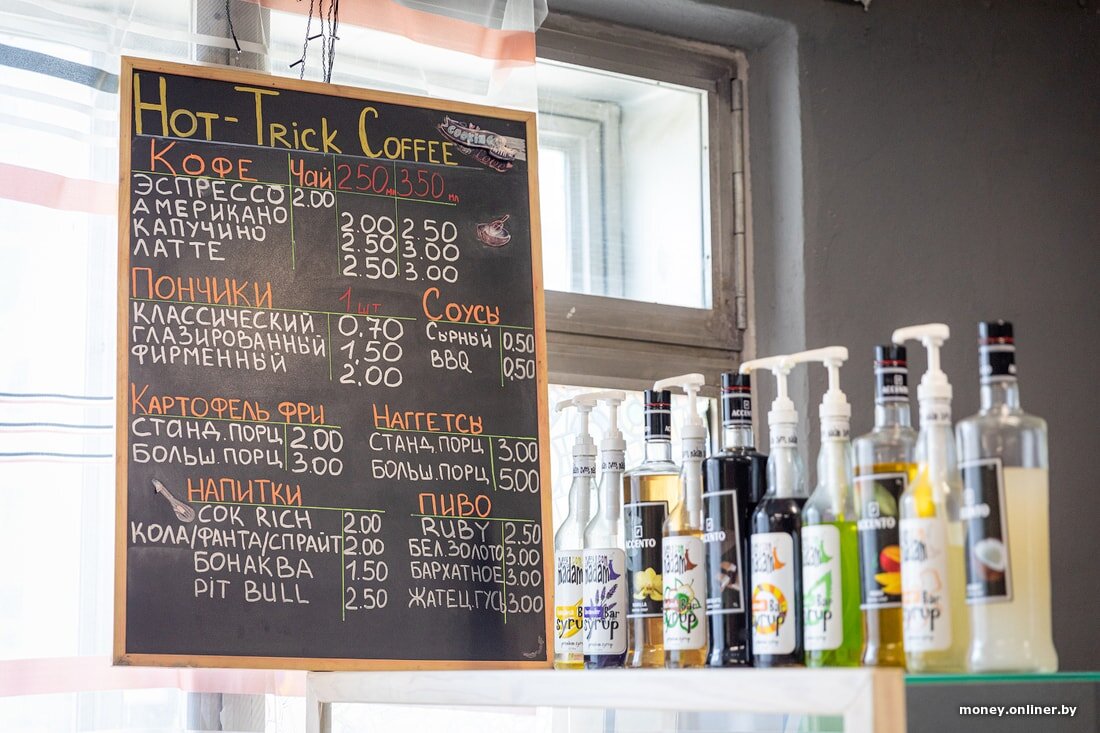 HOT-TRICK COFFEE
cooking
Love
КОФЕ Чай 250 мл 350 мл
ЭСПРЕССО 2.00
АМЕРИКАНО 2.00 2.50
КАПУЧИНО 2.50 3.00
ЛАТТЕ 2.50 3.00
ПОНЧИКИ 1 шт
КЛАССИЧЕСКИЙ 0,70
ГЛАЗИРОВАННЫЙ 1,50
ФИРМЕННЫЙ 2,00
СОУСЫ
СЫРНЫЙ 0,50
BBQ 0,50
КАРТОФЕЛЬ ФРИ
СТАНД.ПОРЦ 2.00
БОЛЬШ.ПОРЦ 3.00
НАГГЕТСЫ
СТАНД.ПОРЦ 3,00
БОЛЬШ.ПОРЦ 5,00
НАПИТКИ
СОК RICH 2.00
КОЛА/ФАНТА/СПРАЙТ 2.00
БОНАКВА 1.50
PIT BULL 2.50
ПИВО
RUBY 2.50
БЕЛ.ЗОЛОТО 3.00
БАРХАТНОЕ 3.00
ЖАТЕЦ.ГУСЬ 3.00
madam
syrup
madam
Bar
syrup
ACCENTO
Bar
syrup
ACCENTO
ACCENTO
Bar
syrup
Bar
syrup
ACCENTO
Bar
syrup
money.onliner.by